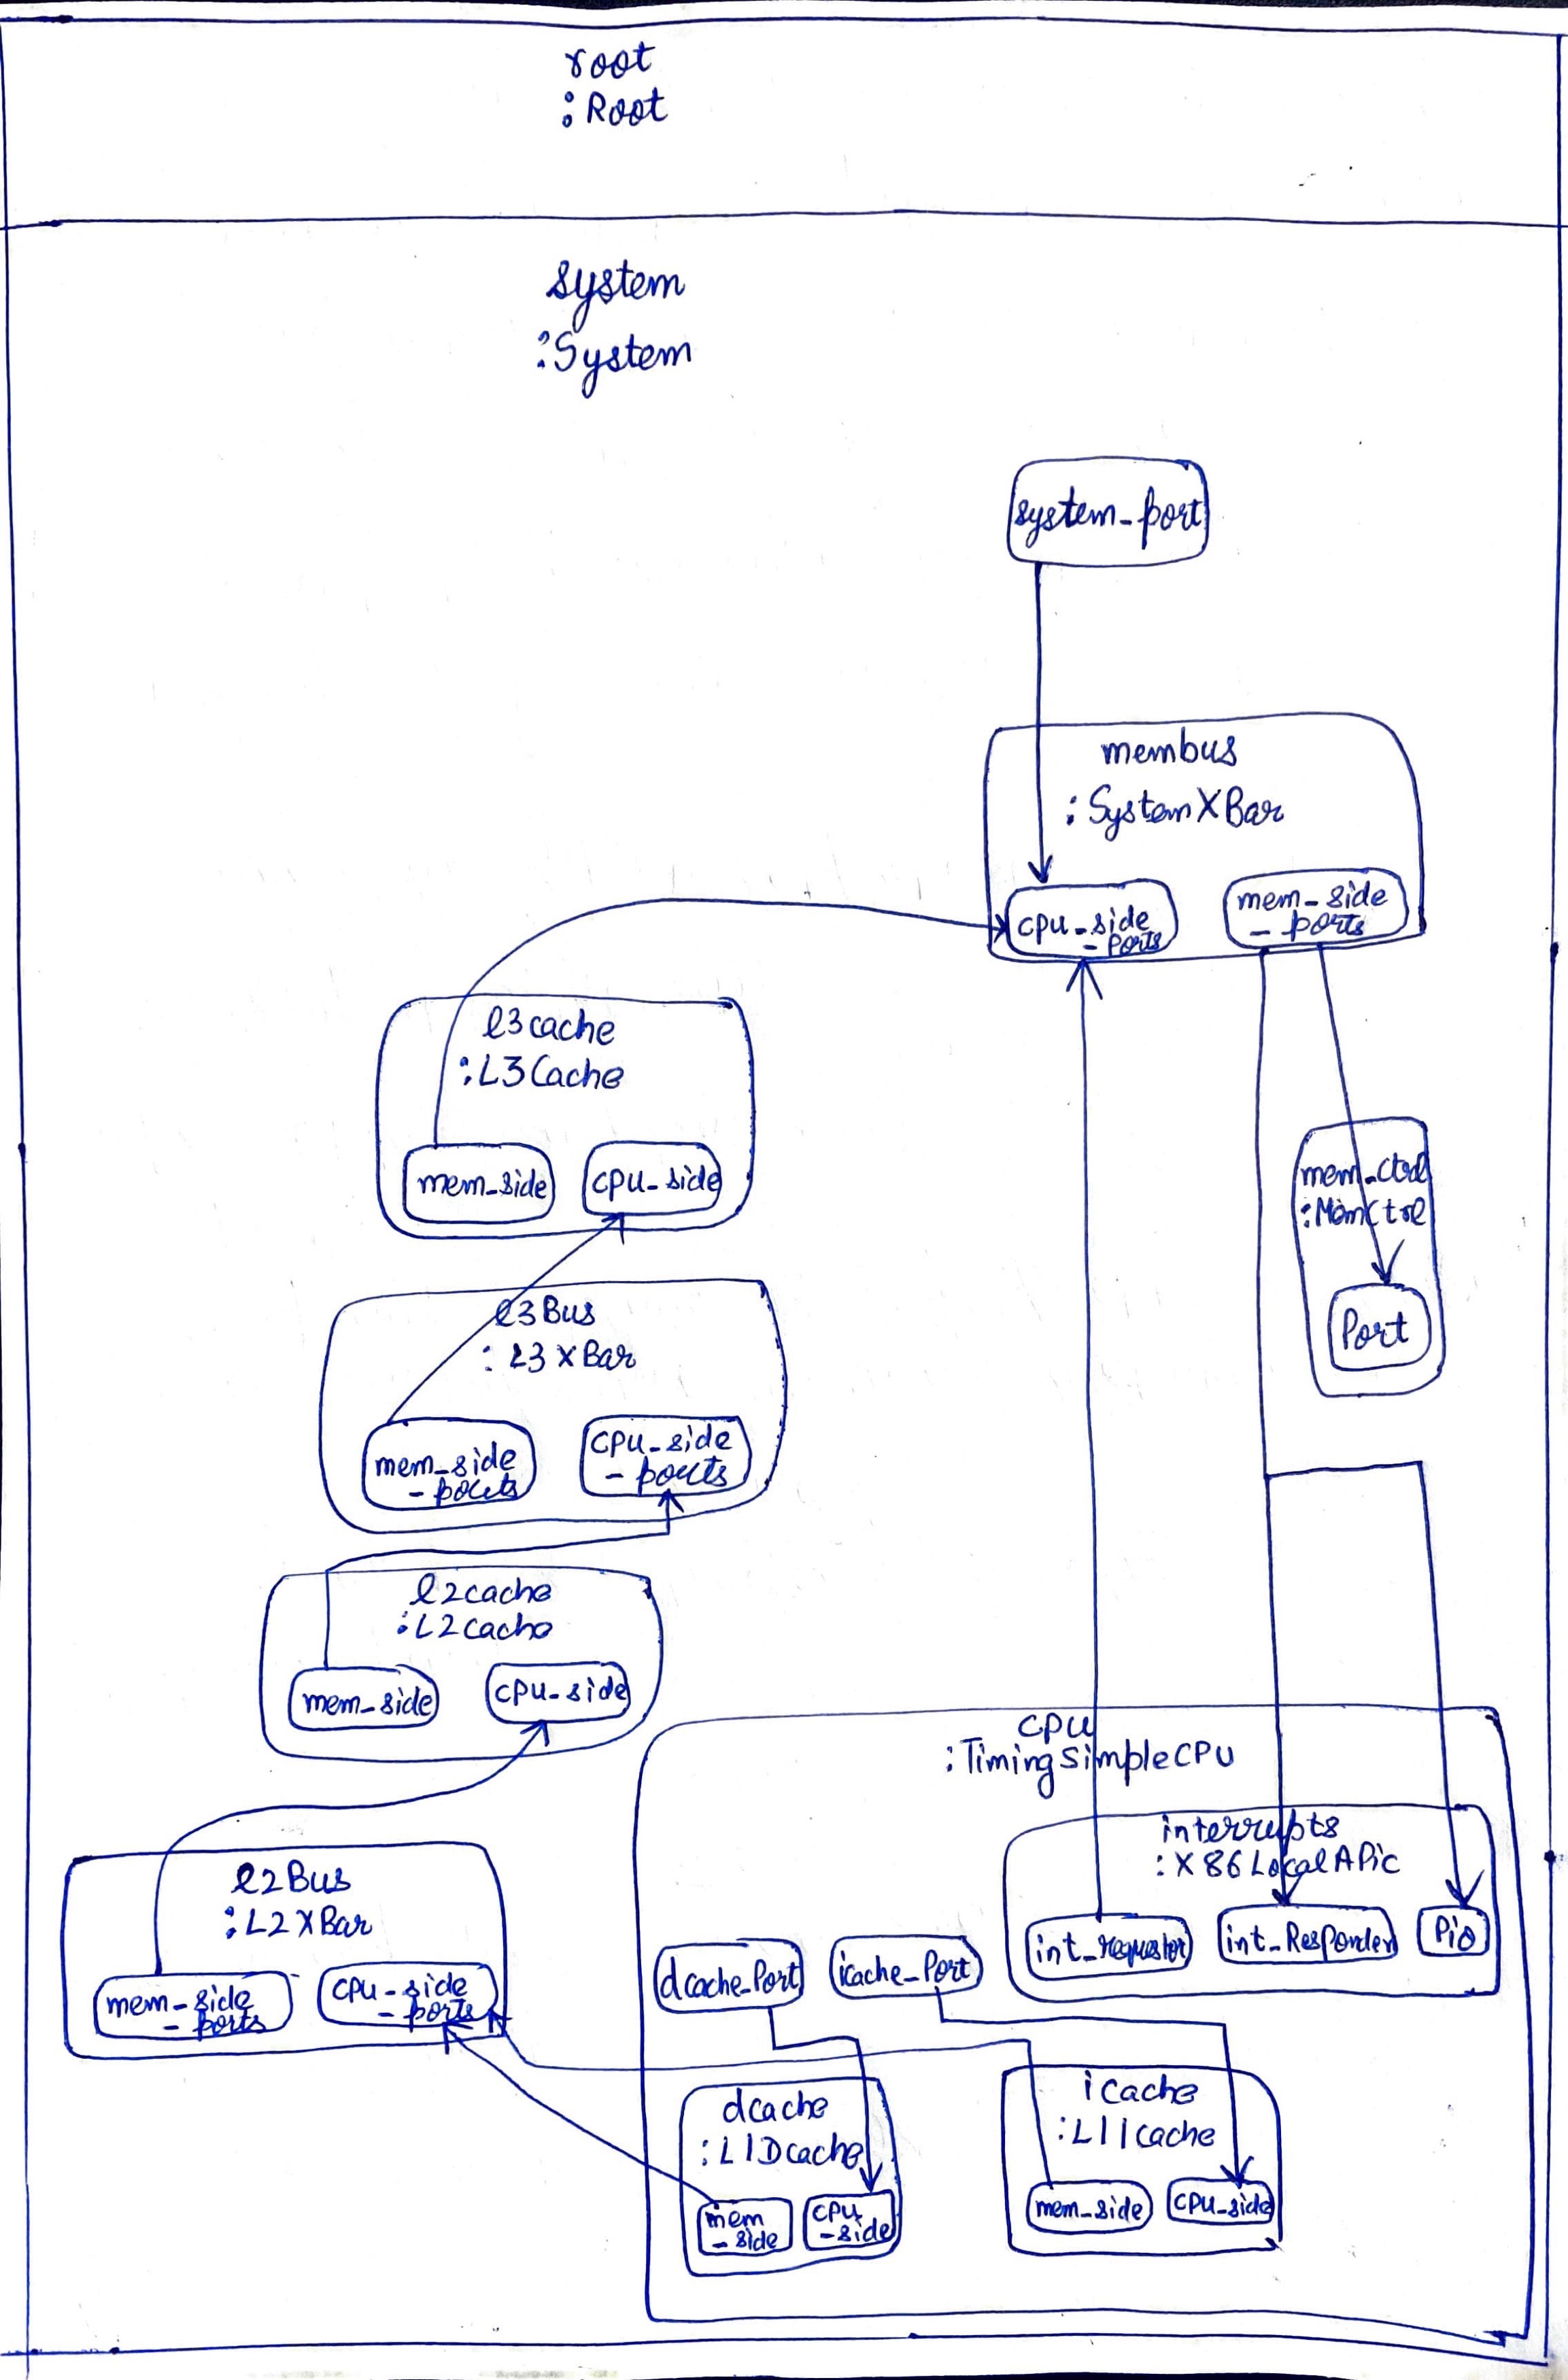 root
: Root
system
: System
system_port
membus
: SystemXBar
cpu_side
_ ports
mem_side
_ ports
l3cache
: L3Cache
mem_side
cpu_side
mem_ctrl
: MemCtrl
Port
l3Bus
: L3XBar
mem_side
_ ports
cpu_side
_ ports
l2cache
: L2cache
mem_side
cpu_side
cpu
: TimingSimpleCPU
interrupts
: X86LocalAPic
int_requestor
int_Responder
Pio
l2Bus
: L2XBar
mem_side
_ ports
cpu_side
_ ports
dcache_Port
icache_Port
dcache
: L1Dcache
mem
_ side
cpu
_ side
icache
: L1Icache
mem_side
cpu_side